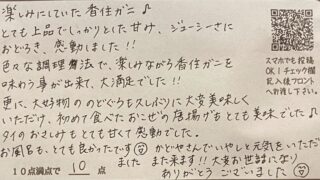 楽しみにしていた香住ガニ♪
とても上品でしっかりとした甘み、ジューシーさに
おどろき、感動しました!!
色々な調理方法で、楽しみながら香住ガニを
味わう事が出来て、大満足でした!!
更に、大好物ののどぐろもスルメイカに大変美味しく
いただけ、初めて食べたおこぜの唐揚げもとても美味でした♪
タイのおさしみもとても甘くて感動でした。
お風呂も、とても良かったです かどやさんでいやしと元気をいただき
ました また来ます!! 大変お世話になり
ありがとうございました
10点満点で 10 点
スマホでも投稿
OK!チェック欄
記入後フロント
へお渡し下さい。